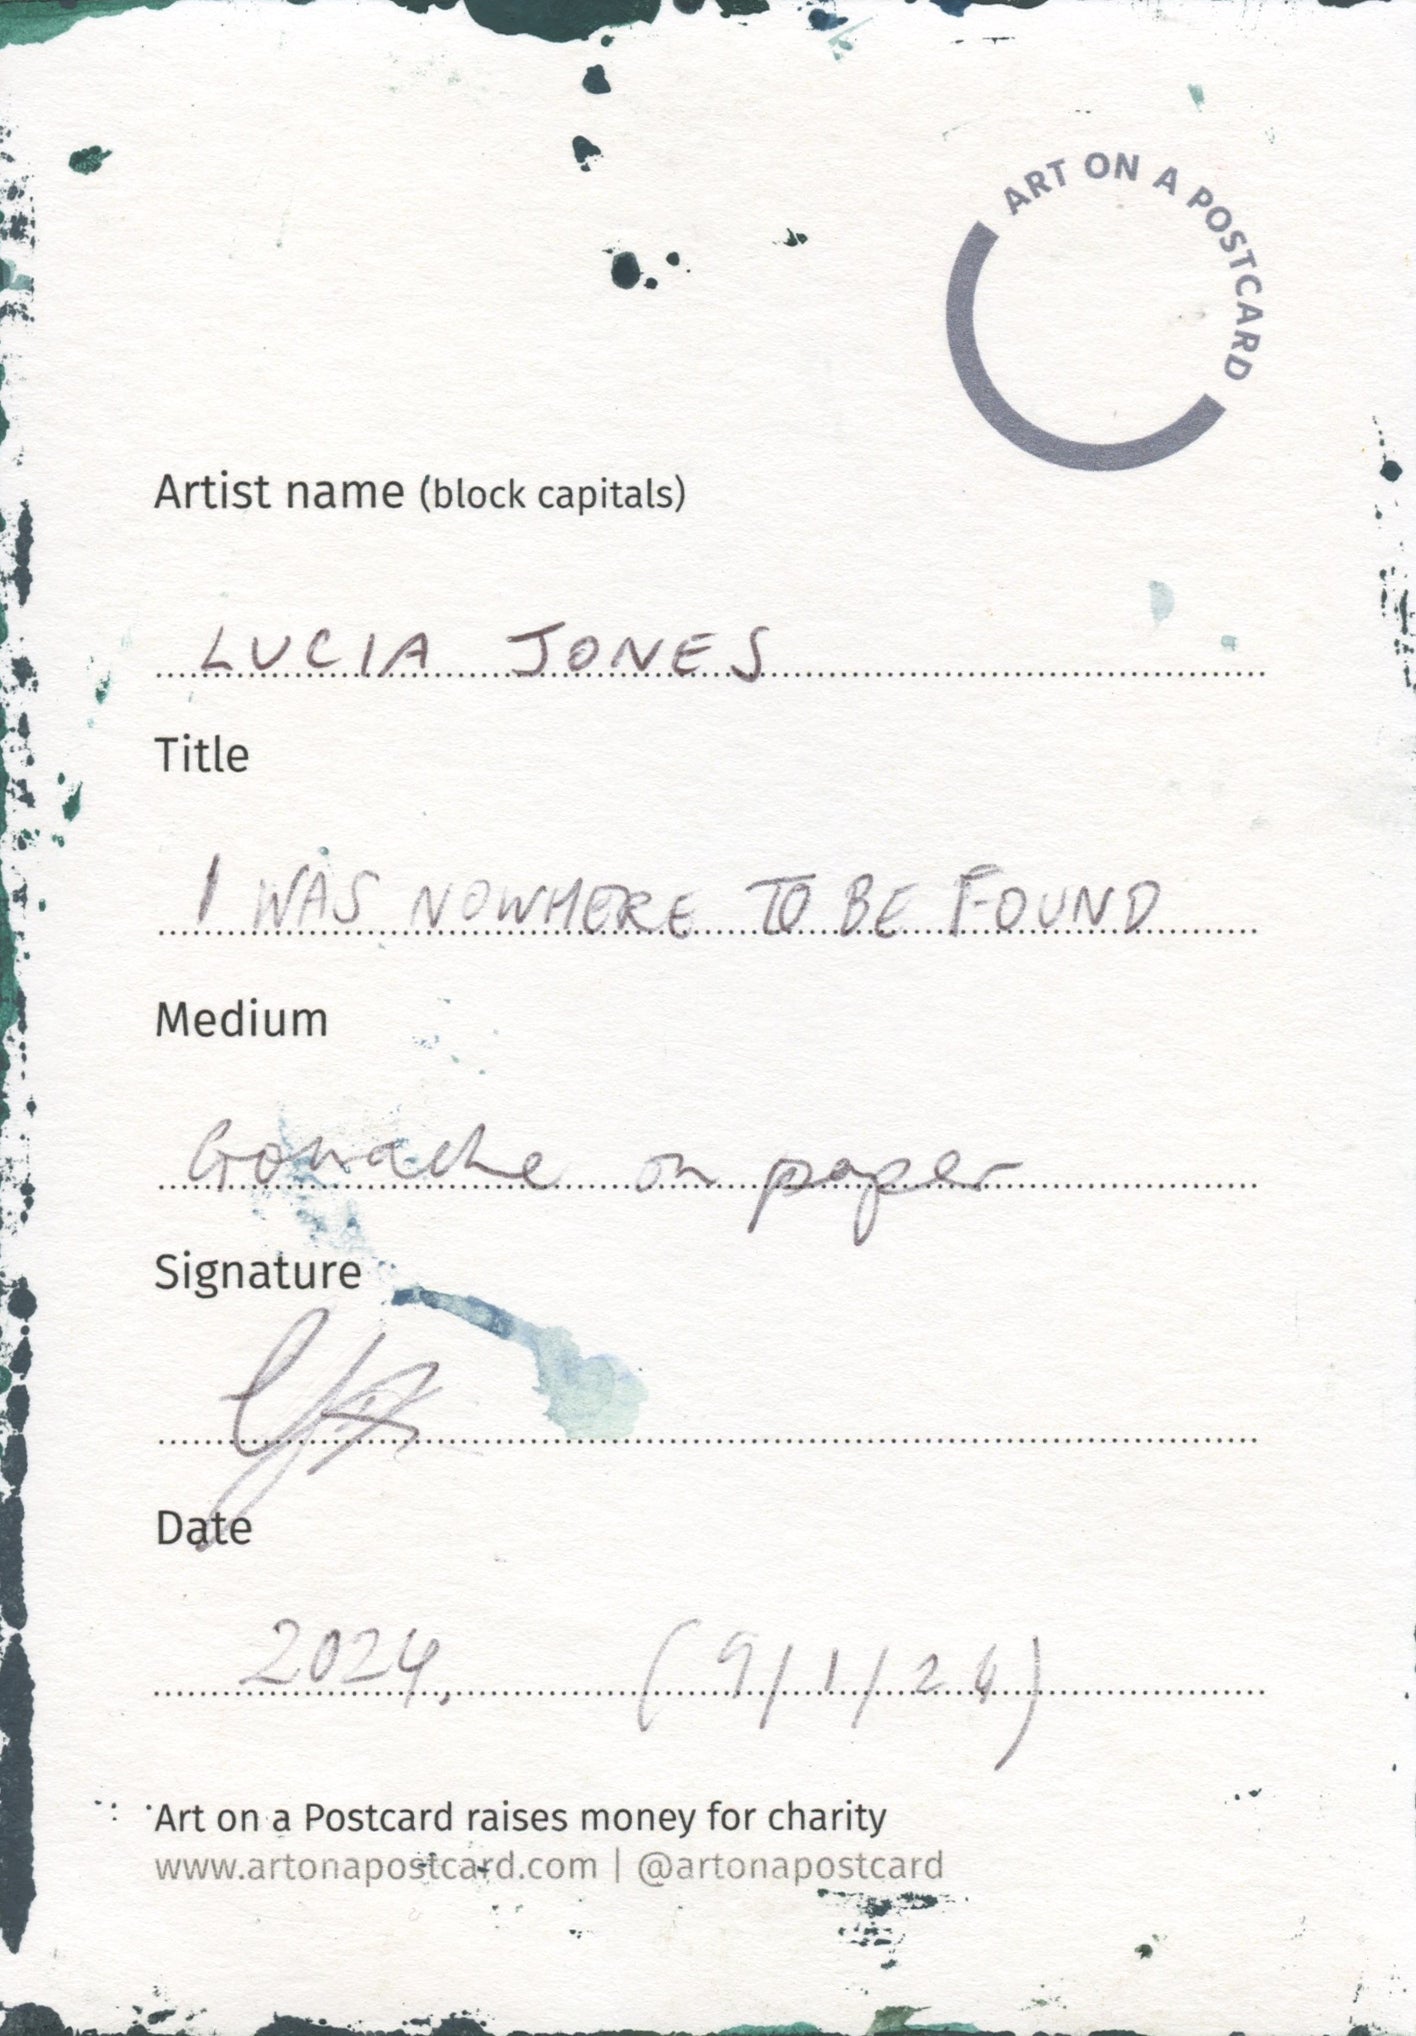 ART ON A POSTCARD
Artist name (block capitals)
LUCIA JONES
Title
I WAS NOWHERE TO BE FOUND
Medium
Gouache on paper
Signature
Date
2024, (9/1/24)
Art on a Postcard raises money for charity
www.artonapostcard.com | @artonapostcard